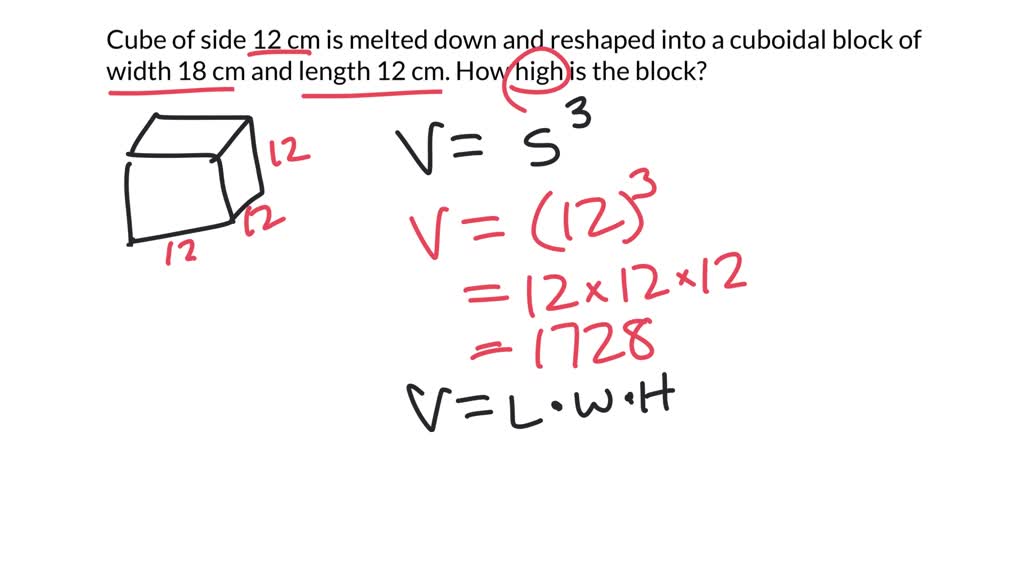 Cube of side 12 cm is melted down and reshaped into a cuboidal block of
width 18 cm and length 12 cm. How high is the block?
12
12
12
V = S³
V = (12)³
= 12 × 12 × 12
= 1728
V = L • W • H